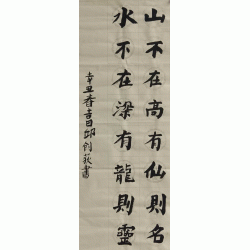 山不在高有仙則名
水不在深有龍則靈
辛丑春吉日 書